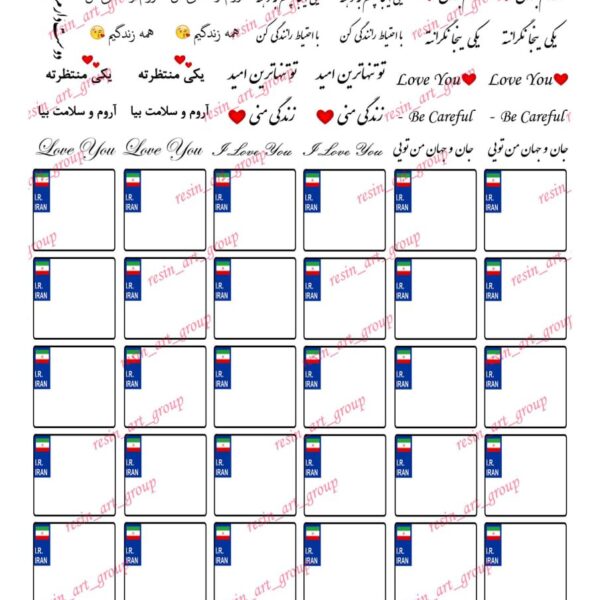 همه زندگیم همه زندگیم با احتیاط رانندگی کن با احتیاط رانندگی کن یکی اینجا نگرانته یکی اینجا نگرانته
یکی منتظرته یکی منتظرته تو تنهاترین امید تو تنهاترین امید Love You Love You
آروم و سلامت بیا آروم و سلامت بیا زندگی منی زندگی منی - Be Careful - Be Careful
Love You Love You I Love You I Love You جان و جهان من تویی جان و جهان من تویی
I.R. IRAN I.R. IRAN I.R. IRAN I.R. IRAN I.R. IRAN I.R. IRAN
I.R. IRAN I.R. IRAN I.R. IRAN I.R. IRAN I.R. IRAN I.R. IRAN
I.R. IRAN I.R. IRAN I.R. IRAN I.R. IRAN I.R. IRAN I.R. IRAN
I.R. IRAN I.R. IRAN I.R. IRAN I.R. IRAN I.R. IRAN I.R. IRAN
I.R. IRAN I.R. IRAN I.R. IRAN I.R. IRAN I.R. IRAN I.R. IRAN
resin_art_group